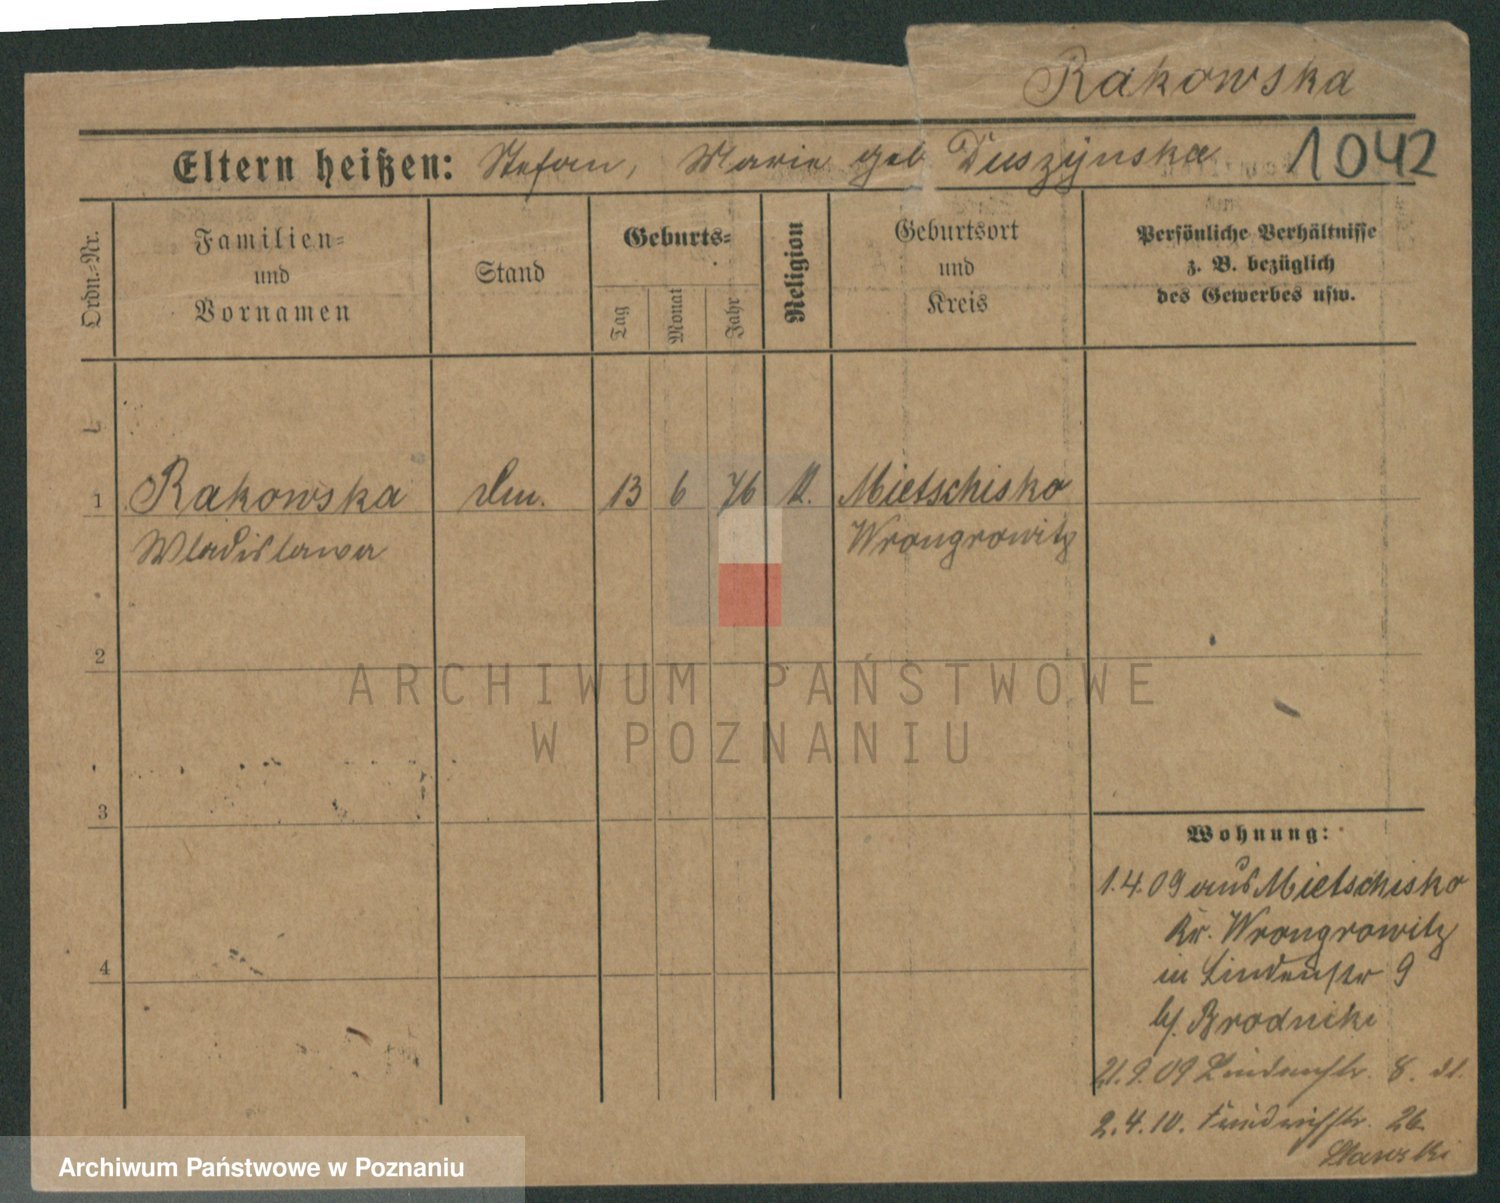 Rakowska
Eltern heißen: Stefan, Marie geb Duszynska 1042
Ordn.-Nr.
Familien-
und
Vornamen
Stand
Geburts-
Tag
Monat
Jahr
Religion
Geburtsort
und
Kreis
Persönliche Verhältnisse
z. B. bezüglich
des Gewerbes usw.
1 Rakowska 13 6 76 K. Mietschisko
Wladislawa Wrongrowitz
2
ARCHIWUM PAŃSTWOWE
W POZNANIU
3
Wohnung:
1.4.09 aus Mietschisko
Kr. Wrongrowitz
in Lindenstr 9
bj. Brodnicki
21.9.09 Lindenstr. 8.
4
2.4.10. Friedrichstr. 26
Archiwum Państwowe w Poznaniu